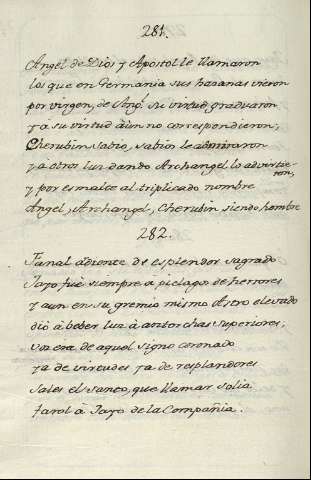 281.
Angel de Dios y Apostol le llamaron
los que en Germania sus hazanas vieron
por virgen, de Song.l su virtud graduaron
y a su virtud aun no correspondieron;
Cherubin sabio, sabios le admiraron
y a otros luz dando Archangel lo advirtie-
ron,
y por esmalte al triplicado nombre
Angel, Archangel, Cherubin siendo hombre
282.
Fanal ardiente de esplendor sagrado
Jayo fuè siempre a pielagos de herrores
y aun en su gremio mismo Astro elevado
diò à beber luz à antorchas superiores;
voz era de aquel signo coronado
ya de virtudes ya de resplandores
Sales el santo, que llamar solia
farol à Jayo de la Compañia.